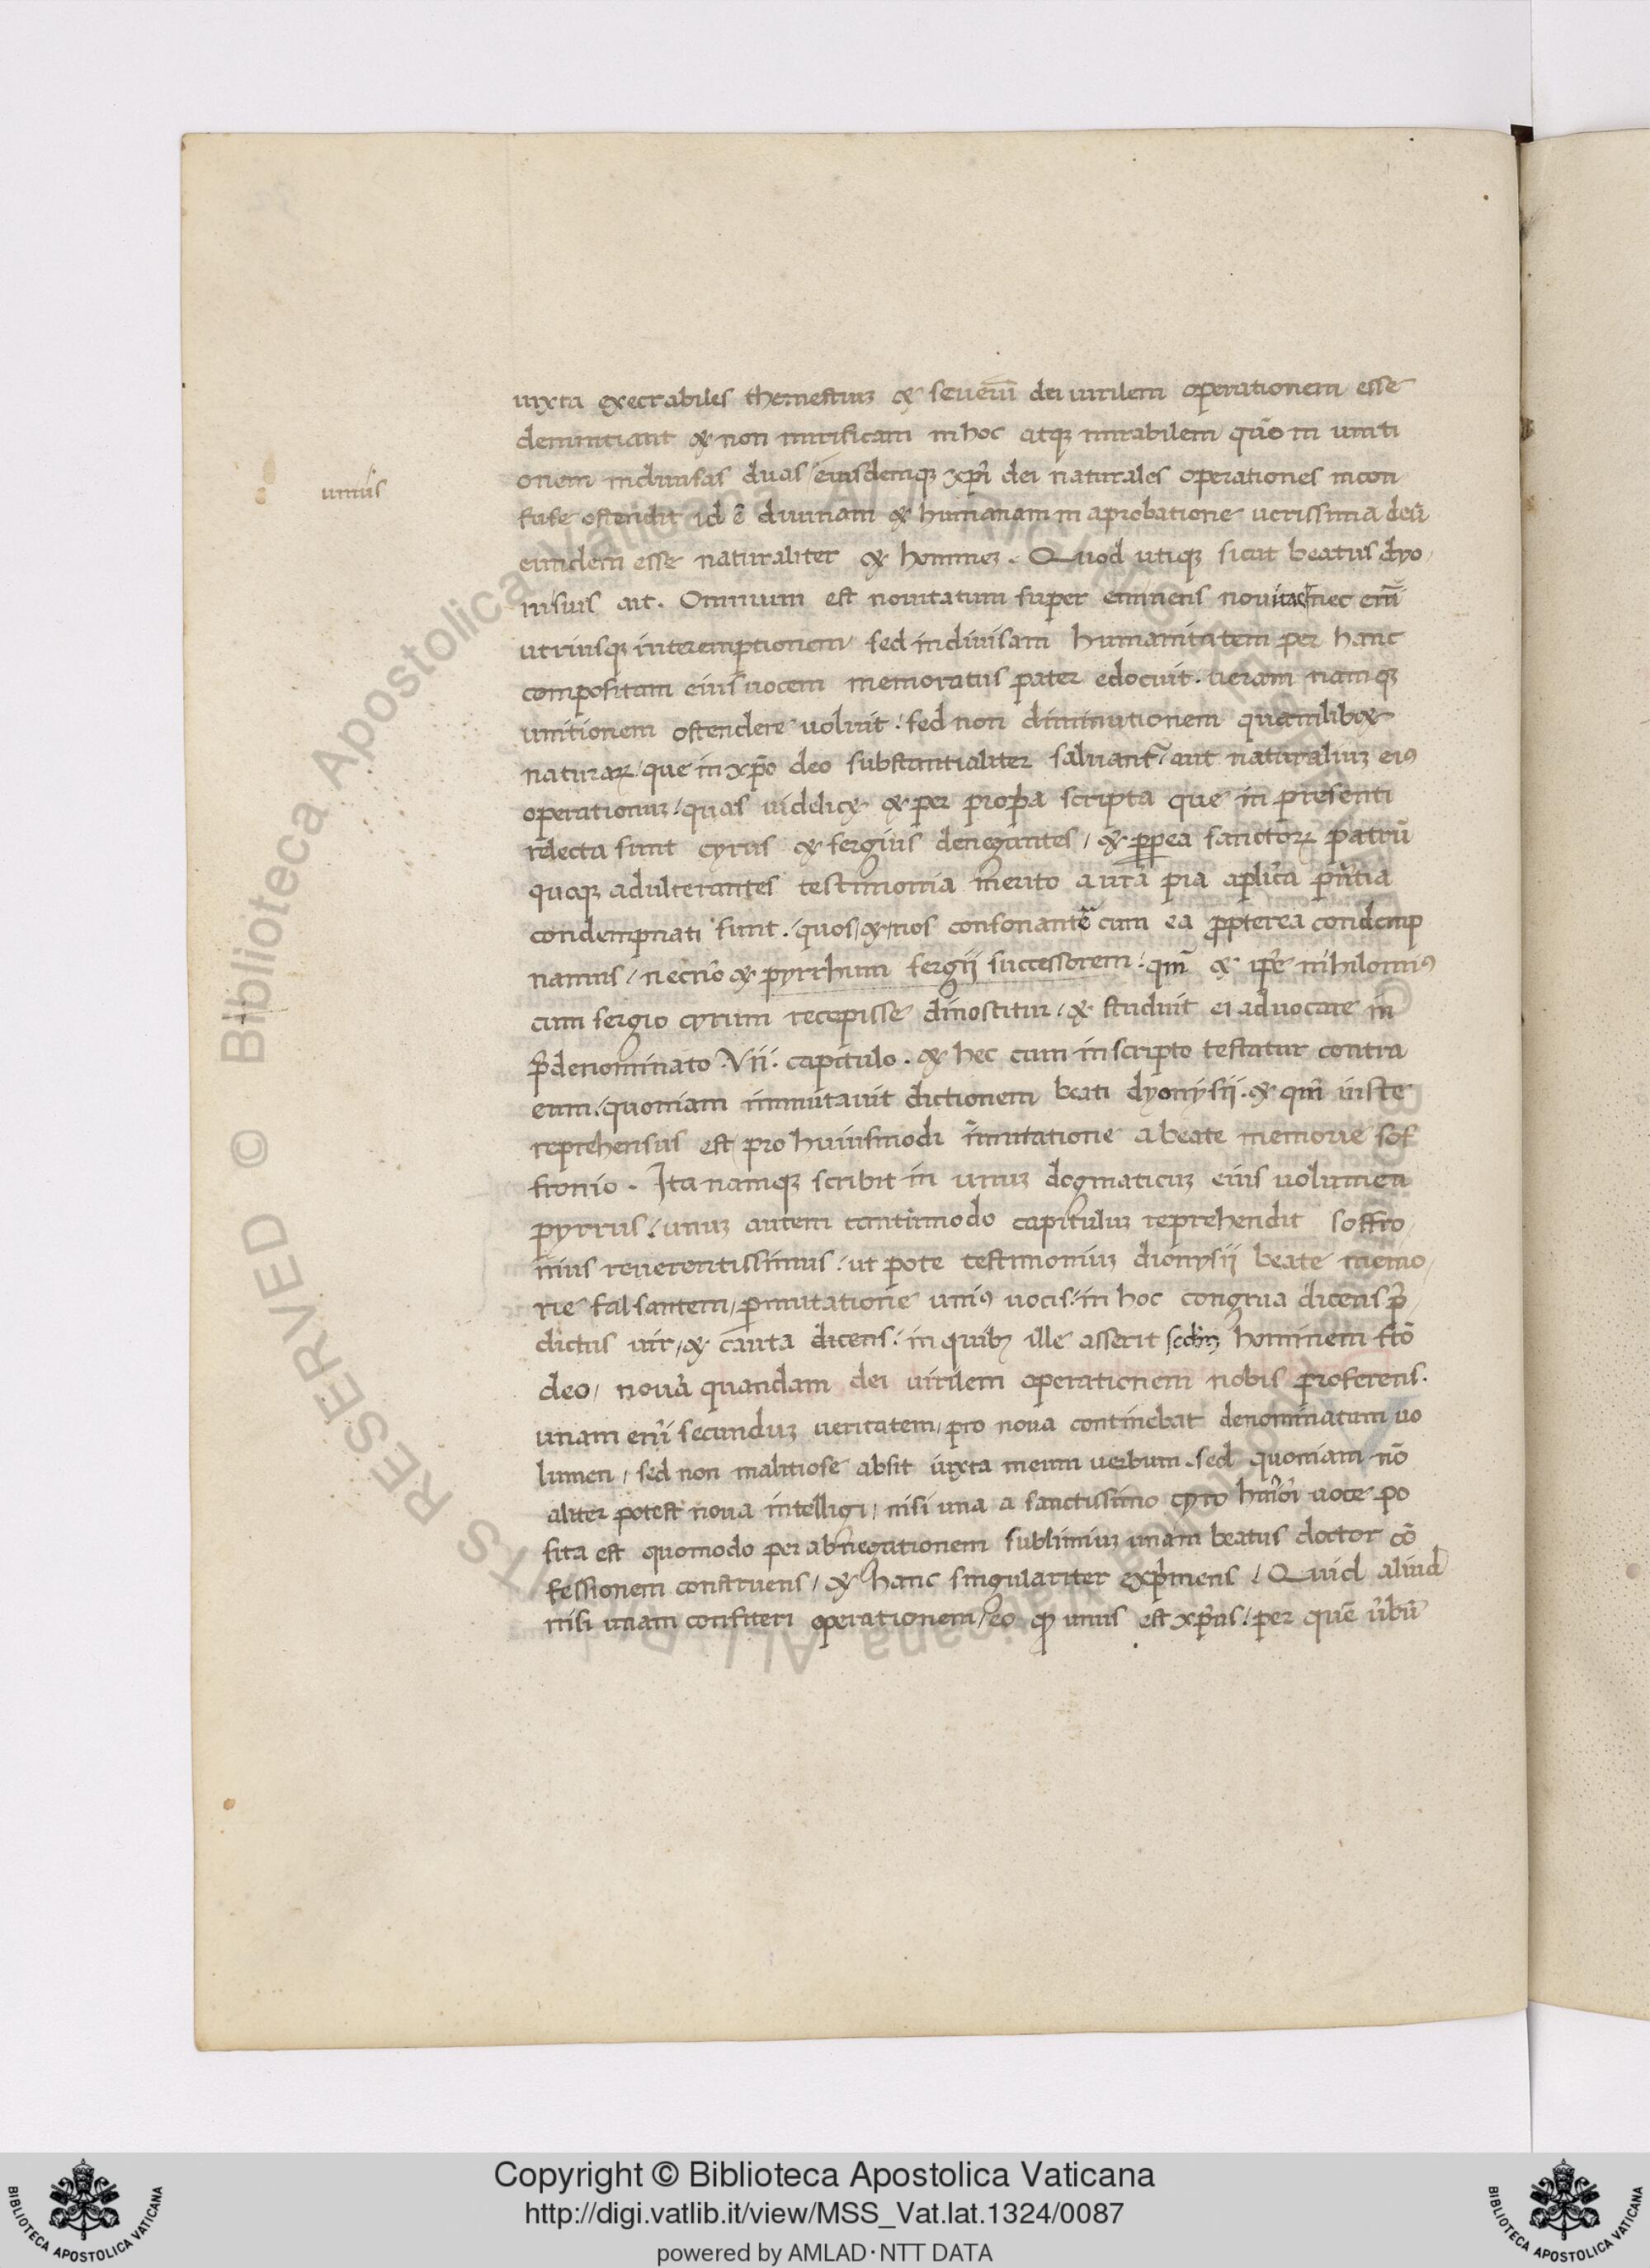 iuxta execrabiles themestium & seuerũ dei uirilem operationem esse
denuntiant & non mirificam in hoc atqꝫ mirabilem quõ in uniti
onem indiuisas duas / eiusdemqꝫ xp̃i dei naturales operationes incon
unius
fuse ostendit id ẽ diuinam & humanam in aprobatione uerissima deũ
eundem esse naturaliter & hominez. Quod utiqꝫ sicut beatus dyo
nisius ait. Omnium est nouitatum super eminens nec em̃
utriusqꝫ interemptionem / sed indiuisam humanitatem per hanc
compositam eius uocem memoratus pater edocuit. ueram namqꝫ
unitionem ostendere uoluit / sed non diminutionem quamlibet
naturaꝝ / que in xp̃o deo substantialiter saluant᷑ / aut naturaliuꝫ eiꝰ
operationuꝫ / quas uidelicꝫ & per prop̃a scripta que in presenti
relecta sunt cyrus & sergius denegantes / & ꝓpea sanctoꝝ patrũ
quoqꝫ adulterantes testimonia merito pia apl̃ica
condempnati sunt. quos / & / nos consonantẽ cum ea ꝓpterea condemp
namus / necnõ & pyrrhum sergii successorem / qm̃ & ip̃e nihilominꝰ
cum sergio cyrum recepisse dinoscitur / & studuit ei aduocare in
p̃denominato .VII. capitulo. & hec cum in scripto testatur contra
eum / quoniam inmutauit dictionem beati dyonysii. & qm̃ iuste
reprehensus est / pro huiusmodi ĩmutatione a beate memorie sof
fronio. Ita namqꝫ scribit in unuꝫ dogmaticuꝫ eius uolumen
pyrrus / unuꝫ autem tantũmodo capituluꝫ reprehendit soffro
nius reuerentissimus / ut pote testimoniuꝫ dionysii beate memo
rie falsantem / ꝑmutatione uniꝰ uocis / in hoc congrua dicens p̃
dictus uir / & cauta dicens / in quibꝫ ille asserit hominem fcõ
deo / nouã quandam dei uirilem operationem nobis proferens.
unam em̃ secunduꝫ ueritatem / pro noua continebat denominatum uo
lumen / sed non malitiose absit iuxta meum uerbum. sed quoniam nõ
aliter potest noua intelligi / nisi una a sanctissimo cyro uoce po
sita est quomodo per abnegationem sublimiuꝫ unam beatus doctor cõ
fessionem construens / & hanc singulariter exp̃mens / Quid aliud
nisi unam confiteri operationem / eo ꝙ unus est xp̃us / per quẽ
Copyright © Biblioteca Apostolica Vaticana
http://digi.vatlib.it/view/MSS_Vat.lat.1324/0087
powered by AMLAD·NTT DATA